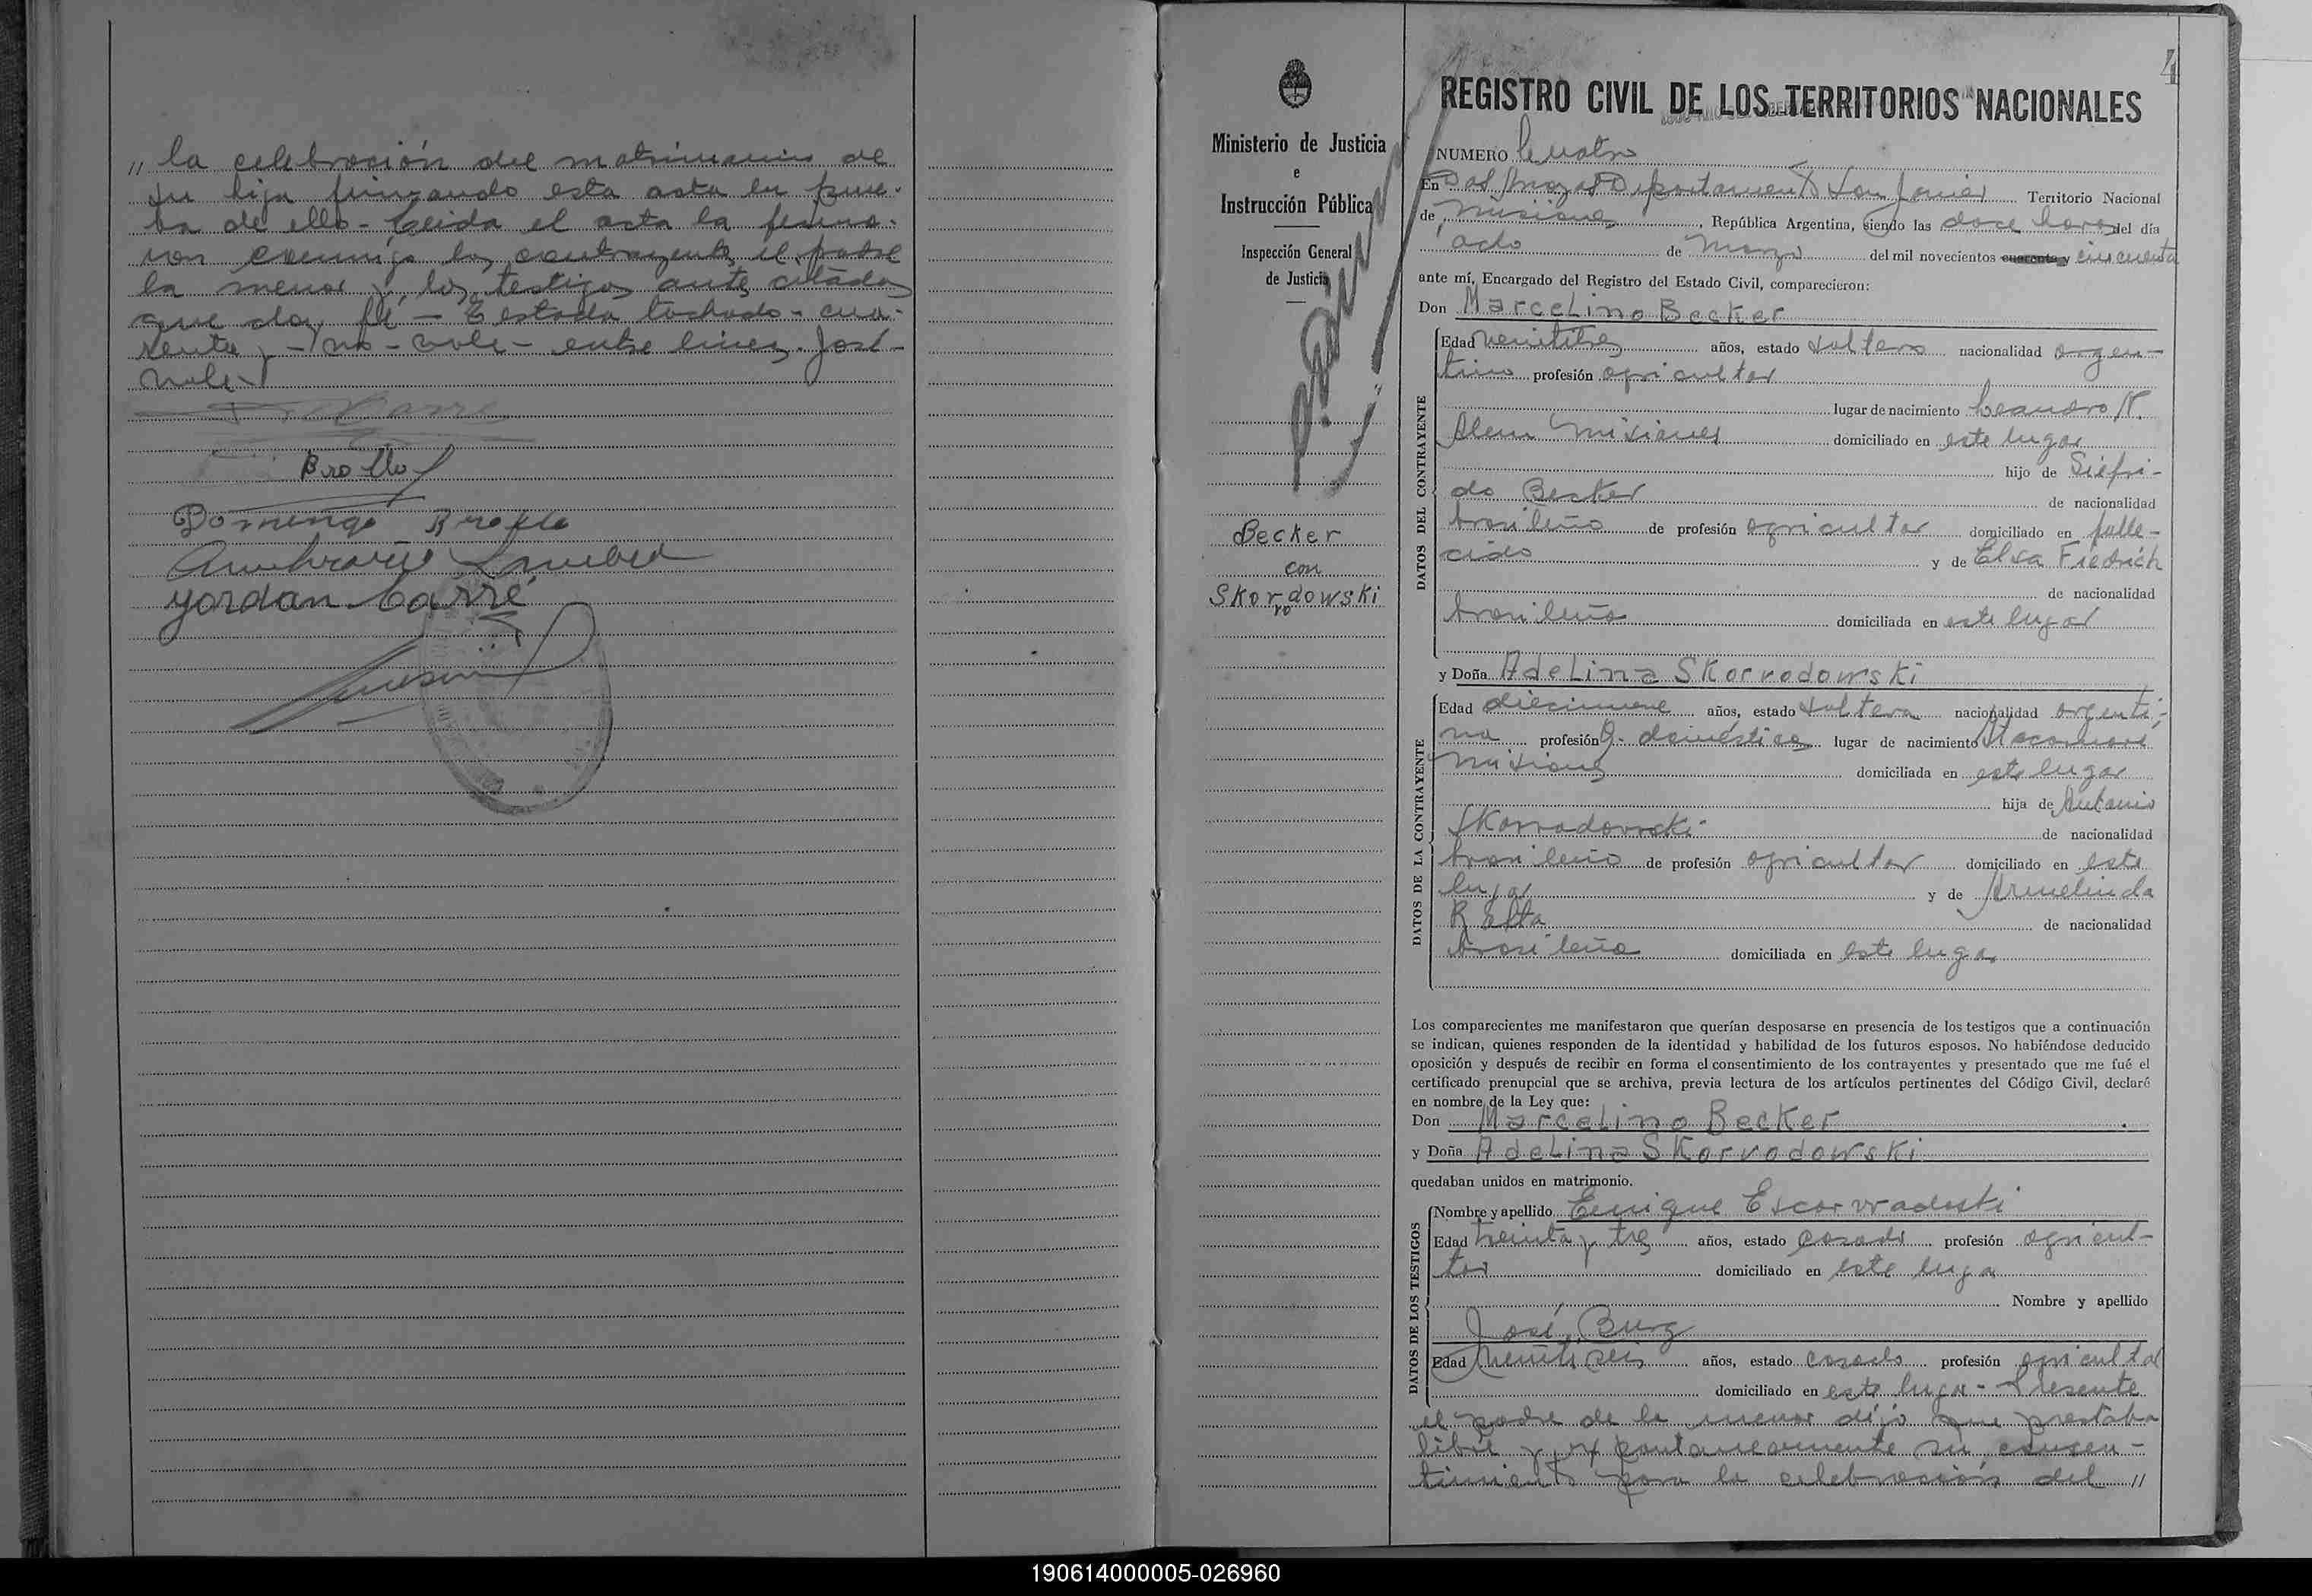 " la celebración del matrimonio de
su hija firmando esta acta en prue-
ba de ello - Leida el acta la firma-
ron conmigo los contrayentes el padre
la menor y los testigos antes citados
que doy fé - E estado tachado - cua-
renta y - no - vale - entre lineas - José -
vale -
Brollo
Domingo Brollo
Yordan Carré
4
Ministerio de Justicia
e
Instrucción Pública
Inspección General
de Justicia
Becker
con
Skordowski
ro
REGISTRO CIVIL DE LOS TERRITORIOS NACIONALES
NUMERO Cuatro
En Dos Arroyos Departamento San Javier Territorio Nacional
de Misiones, República Argentina, siendo las doce horas del día
ocho de Marzo del mil novecientos cuarenta y cincuenta
ante mí, Encargado del Registro del Estado Civil, comparecieron:
Don Marcelino Becker
DATOS DEL CONTRAYENTE
Edad veintitres años, estado soltero nacionalidad argen-
tino profesión agricultor
lugar de nacimiento Leandro N.
Alem Misiones domiciliado en este lugar
hijo de Siefri-
do Becker de nacionalidad
brasileño de profesión agricultor domiciliado en falle-
cido y de Elsa Fiedrich
de nacionalidad
brasileña domiciliada en este lugar
y Doña Adelina Skorvodowski
DATOS DE LA CONTRAYENTE
Edad diecinueve años, estado soltera nacionalidad argenti-
na profesión Q. domésticos lugar de nacimiento
Misiones domiciliada en este lugar
hija de Antonio
Skorvadovski de nacionalidad
brasileño de profesión agricultor domiciliado en este
lugar y de Armelinda
de nacionalidad
brasileña domiciliada en este lugar
Los comparecientes me manifestaron que querían desposarse en presencia de los testigos que a continuación
se indican, quienes responden de la identidad y habilidad de los futuros esposos. No habiéndose deducido
oposición y después de recibir en forma el consentimiento de los contrayentes y presentado que me fué el
certificado prenupcial que se archiva, previa lectura de los artículos pertinentes del Código Civil, declaré
en nombre de la Ley que:
Don Marcelino Becker
y Doña Adelina Skorvodowski
quedaban unidos en matrimonio.
DATOS DE LOS TESTIGOS
Nombre y apellido Enrique Escorvradoski
Edad treinta y tres años, estado casado profesión agricul-
tor domiciliado en este lugar
Nombre y apellido
José Burg
Edad veintiseis años, estado casado profesión agricultor
domiciliado en este lugar - Presente
el padre de la menor dijo que prestaba
libre y expontaneamente su consen-
timiento para la celebración del "
190614000005-026960